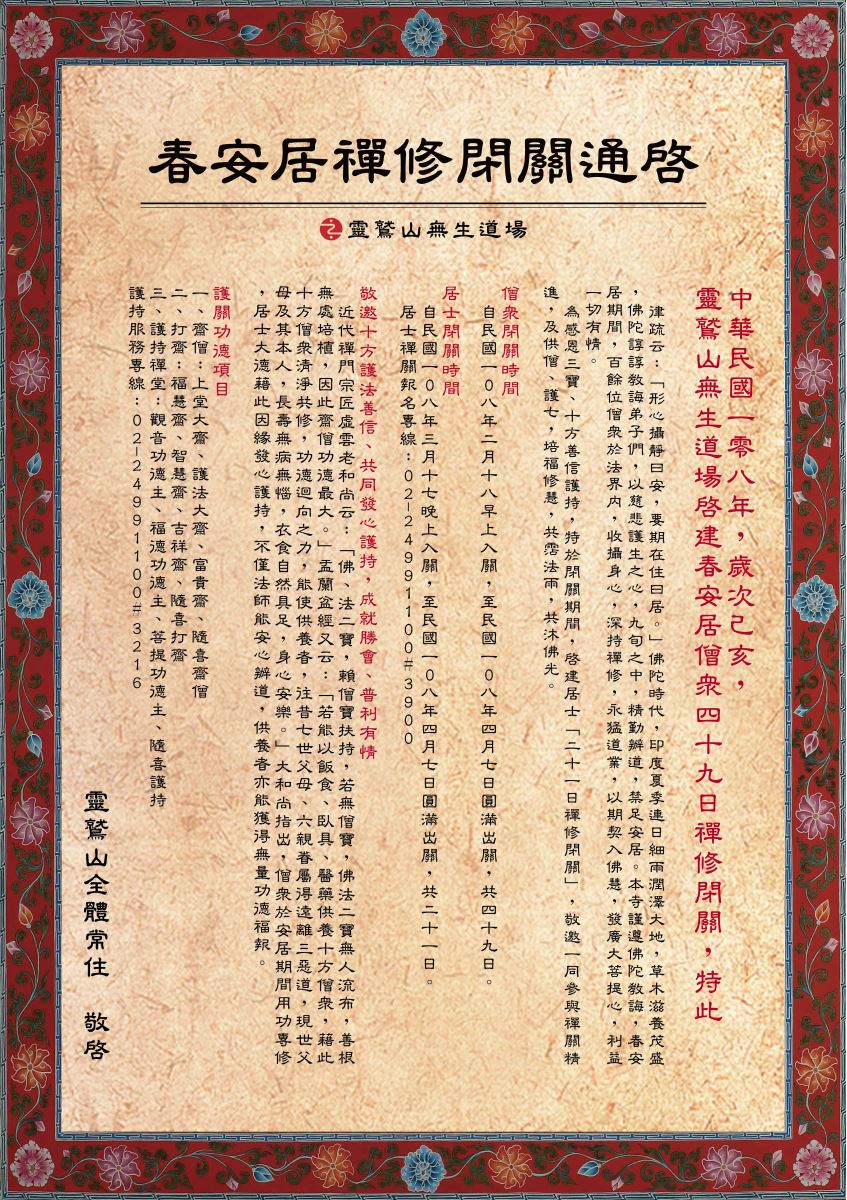 春安居禪修閉關通啓
靈鷲山無生道場
中華民國一零八年，歲次己亥，
靈鷲山無生道場啓建春安居僧衆四十九日禪修閉關，特此
津疏云：「形心攝靜曰安，要期在住曰居。」佛陀時代，印度夏季連日細雨潤澤大地，草木滋養茂盛
，佛陀諄諄教誨弟子們，以慈悲護生之心，九旬之中，精勤辦道，禁足安居。本寺謹遵佛陀教誨，春安
居期間，百餘位僧衆於法界內，收攝身心，深持禪修，永猛道業，以期契入佛慧，發廣大菩提心，利益
一切有情。
為感恩三寶、十方善信護持，特於閉關期間，啓建居士「二十一日禪修閉關」，敬邀一同參與禪關精
進，及供僧、護七，培福修慧，共霑法雨，共沐佛光。
僧衆閉關時間
自民國一０八年二月十八早上入關，至民國一０八年四月七日圓滿出關，共四十九日。
居士閉關時間
自民國一０八年三月十七晚上入關，至民國一０八年四月七日圓滿出關，共二十一日。
居士禪關報名專線：02-24991100#3900
敬邀十方護法善信、共同發心護持，成就勝會、普利有情
近代禪門宗匠虛雲老和尚云：「佛、法二寶，賴僧寶扶持，若無僧寶，佛法二寶無人流布，善根
無處培植，因此齋僧功德最大。」盂蘭盆經又云：「若能以飯食、臥具、醫藥供養十方僧衆，藉此
十方僧衆清淨共修，功德迴向之力，能使供養者，往昔七世父母、六親眷屬得遠離三惡道，現世父
母及其本人，長壽無病無惱，衣食自然具足，身心安樂。」大和尚指出，僧衆於安居期間用功專修
，居士大德藉此因緣發心護持，不僅法師能安心辦道，供養者亦能獲得無量功德福報。
護關功德項目
一、齋僧：上堂大齋、護法大齋、富貴齋、隨喜齋僧
二、打齋：福慧齋、智慧齋、吉祥齋、隨喜打齋
三、護持禪堂：觀音功德主、福德功德主、菩提功德主、隨喜護持
護持服務專線：02-24991100#3216
靈鷲山全體常住　敬啓